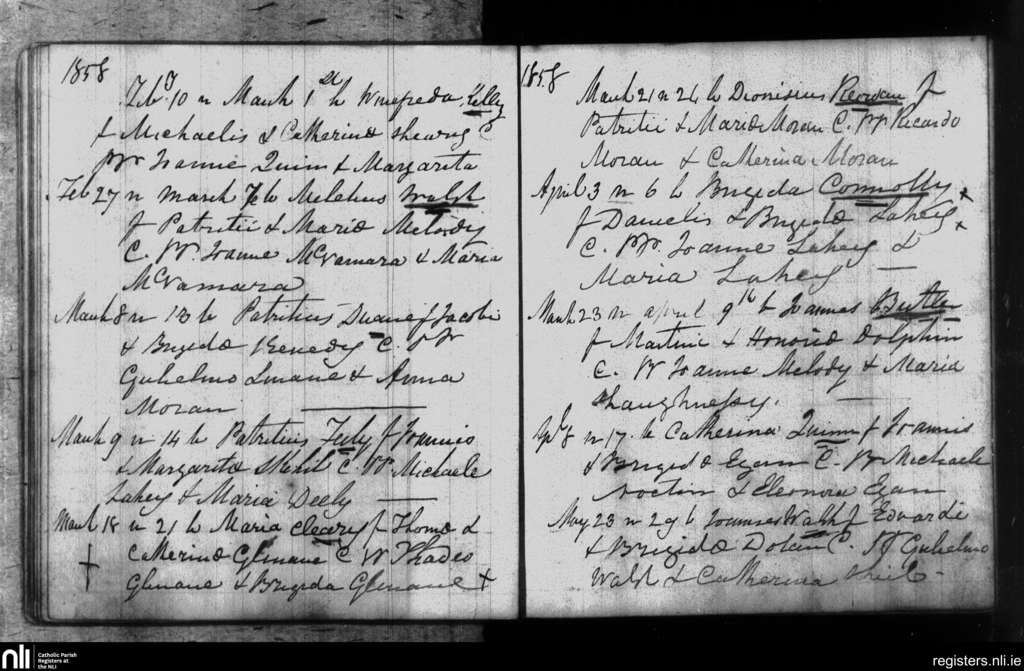 1858
Feb 10 n March 1st b Winefreda Kelly
f Michaelis & Catherinæ C
PP Joanne Quinn & Margarita
Feb 27 n March 7 b Walsh
f Patritii & Mariæ Melody
C. PP. Joanne McNamara & Maria
McNamara
March 8 n 13 b Patritius Duane f Jacobi
& Brigidæ Kenedy C. PP
Gulielmo & Anna
Moran
March 9 n 14 b Patritius f Joannis
& Margaritæ C. PP. Michaele
Lahey & Maria Deely
March 18 n 21 b Maria Cleary f Thomæ &
Catherinæ Glinane C PP Thadeo
Glinane & Brigida Glinane +
1858
March 21 n 24 b Dionisius Kerwan f
Patritii & Mariæ Moran C. PP Ricardo
Moran & Catherina Moran
April 3 n 6 b Brigida Connolly x
f Danielis & Brigidæ Lahey x
C. PP. Joanne Lahey &
Maria Lahey
March 23 n April 9th b Joannes Butler
f Martini & Honoriæ Dolphin
C. PP Joanne Melody & Maria
Shaughnessy.
Apl 8 n 17. b Catherina Quinn f Joannis
& Brigidæ Egan C. PP Michaele
& Eleonora Egan
May 23 n 29 b Joannes Walsh f Edvardi
& Brigidæ Dolan C. PP Gulielmo
Walsh & Catherina Shiel
nli Catholic Parish
Registers at
the NLI
registers.nli.ie